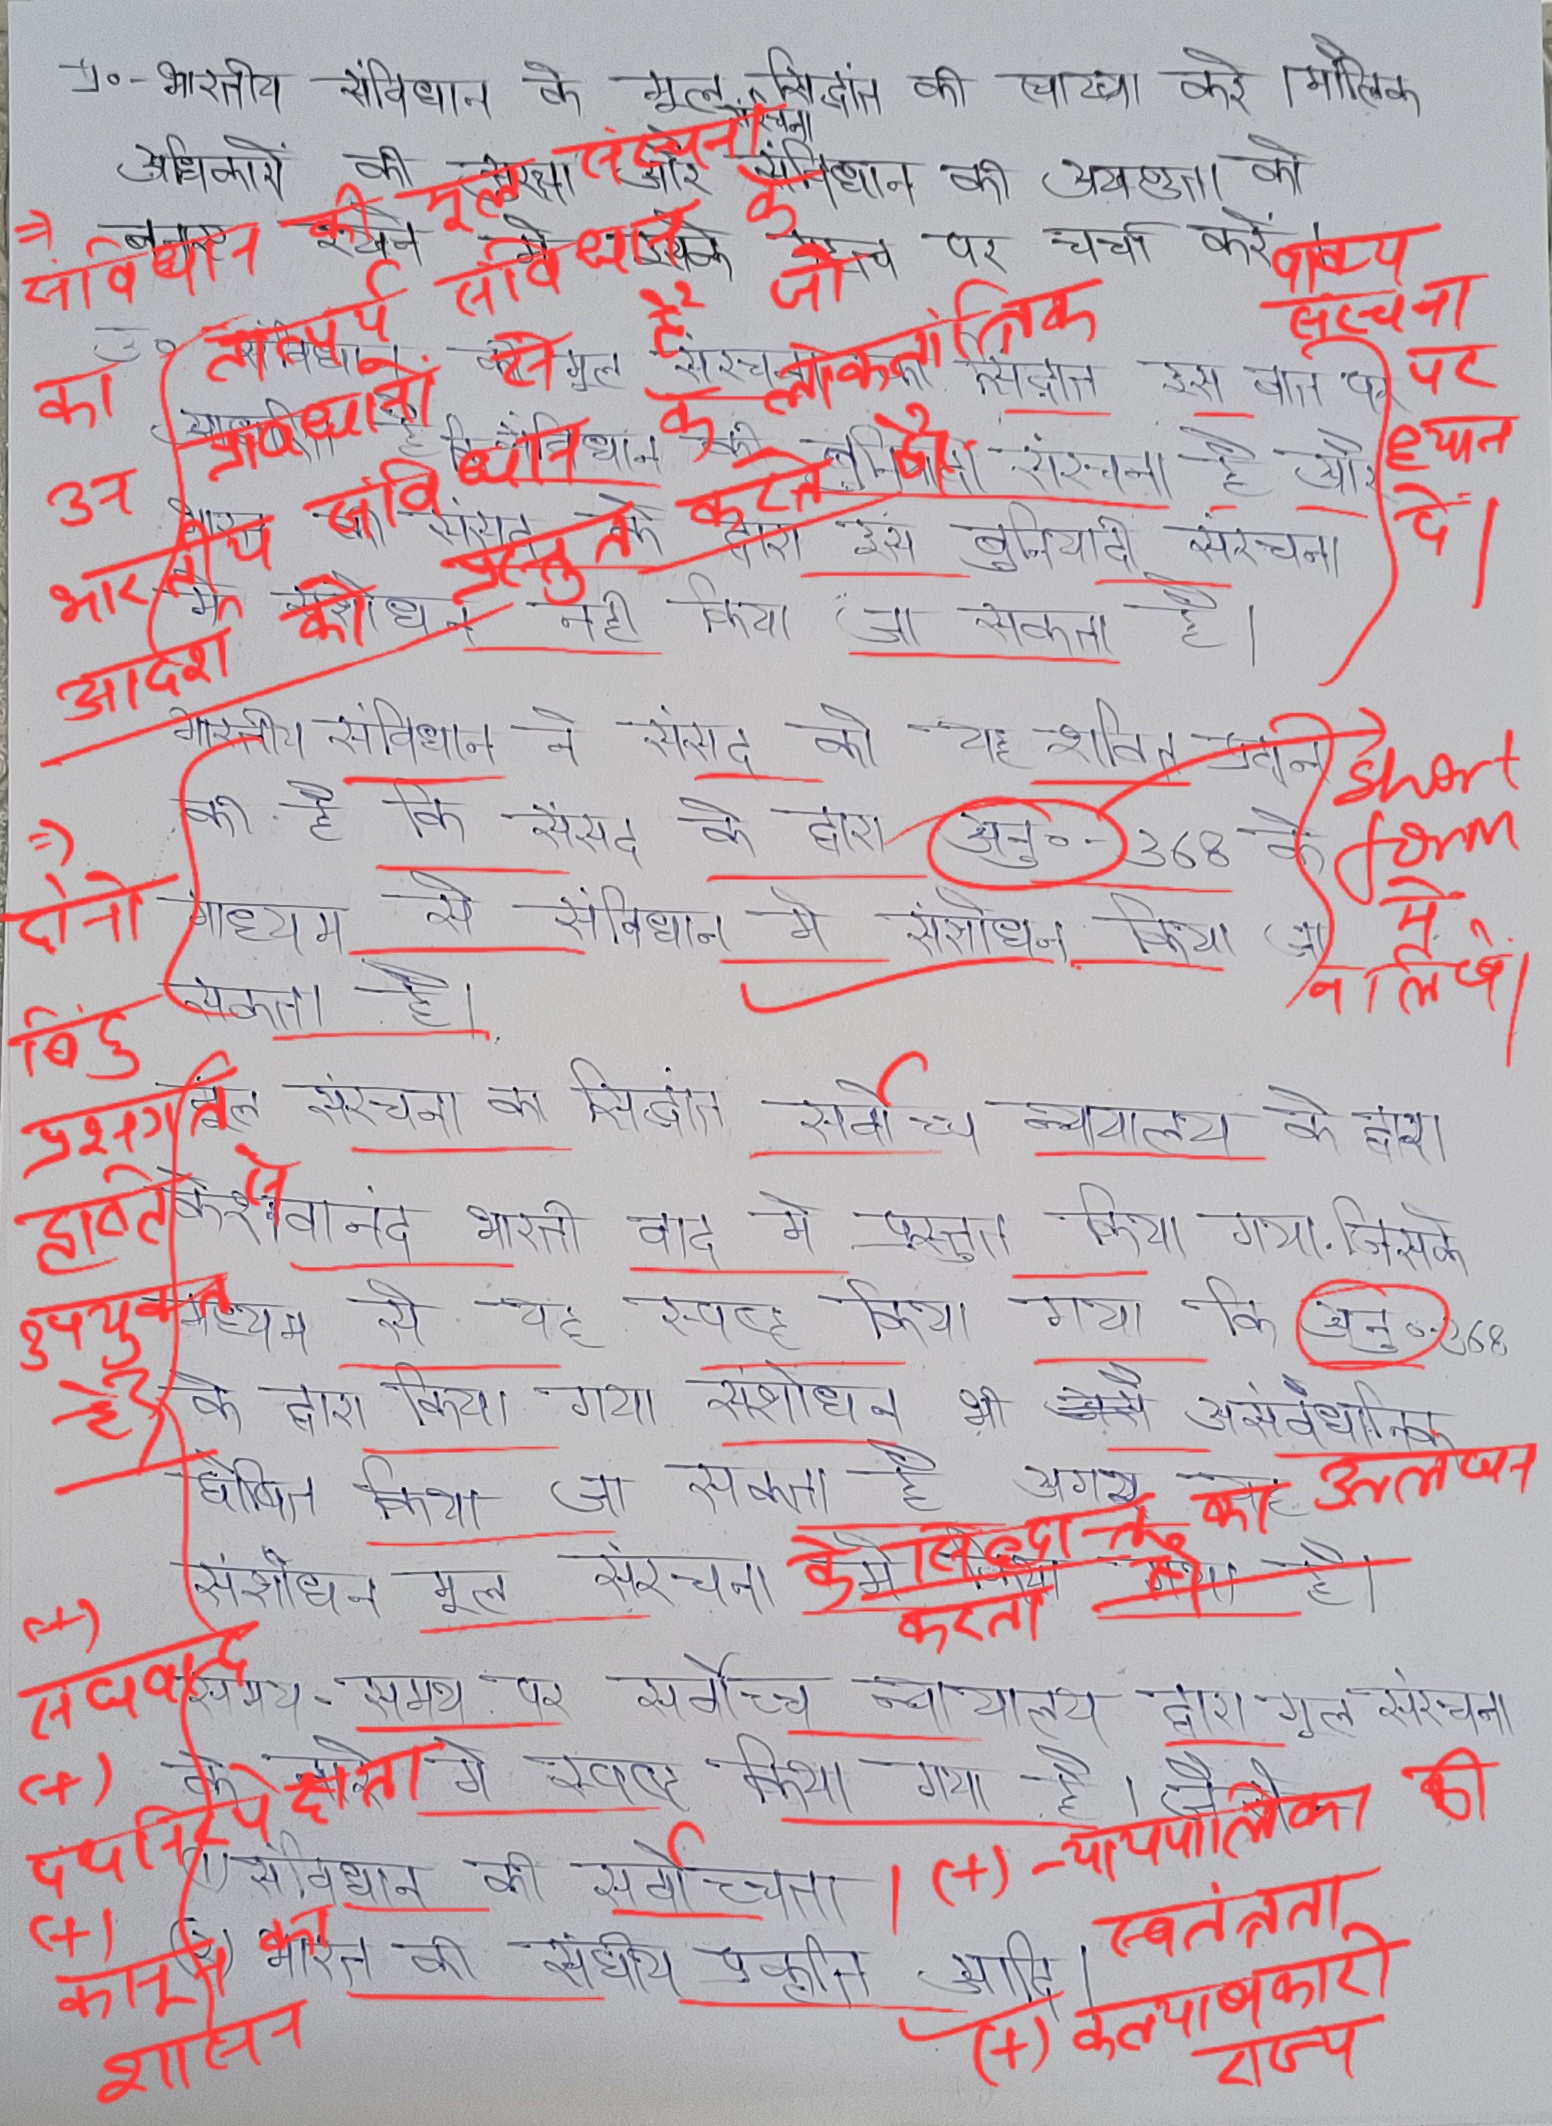 प्र०-भारतीय संविधान के मूल संरचना सिद्धांत की व्याख्या करें। मौलिक
अधिकारों की सुरक्षा और संविधान की अखण्डता को
बनाए रखने में इसके महत्व पर चर्चा करें।
⇒ संविधान की मूल संरचना
का तात्पर्य संविधान के
उन प्रावधानों से है जो
भारतीय संविधान के लोकतांत्रिक
आदर्श को प्रस्तुत करते हैं।
वाक्य
संरचना
पर
ध्यान
दें।
उ० संविधान के मूल संरचना का सिद्धांत इस बात पर
आधारित है कि संविधान की बुनियादी संरचना है और
भारत की संसद के द्वारा इस बुनियादी संरचना
में संशोधन नही किया जा सकता है।
भारतीय संविधान ने संसद को यह शक्ति प्रदान
की है कि संसद के द्वारा अनु०- 368 के
माध्यम से संविधान मे संशोधन किया जा
सकता है।
Short
form
में
न लिखें।
⇒ दोनो
बिंदु
प्रश्नगत
उपयुक्त
है
मूल संरचना का सिद्धांत सर्वोच्च न्यायालय के द्वारा
केशवानंद भारती वाद मे प्रस्तुत किया गया. जिसके
मध्यम से यह स्पष्ट किया गया कि अनु०-368
के द्वारा किया गया संशोधन भी असंवैधानिक
घोषित किया जा सकता है अगर यह
संशोधन मूल संरचना मे किया गया है।
के सिद्धान्त का उल्लंघन
करता
समय-समय पर सर्वोच्च न्यायालय द्वारा मूल संरचना
के बारे मे स्पष्ट किया गया है। जैसे
(1) संविधान की सर्वोच्चता।
(2) भारत की संघीय प्रकृति आदि।
(+)
संघवाद
(+)
पंथनिरपेक्षता
(+)
कानून का
शासन
(+) न्यायपालिका की
स्वतंत्रता
(+) कल्याणकारी
राज्य